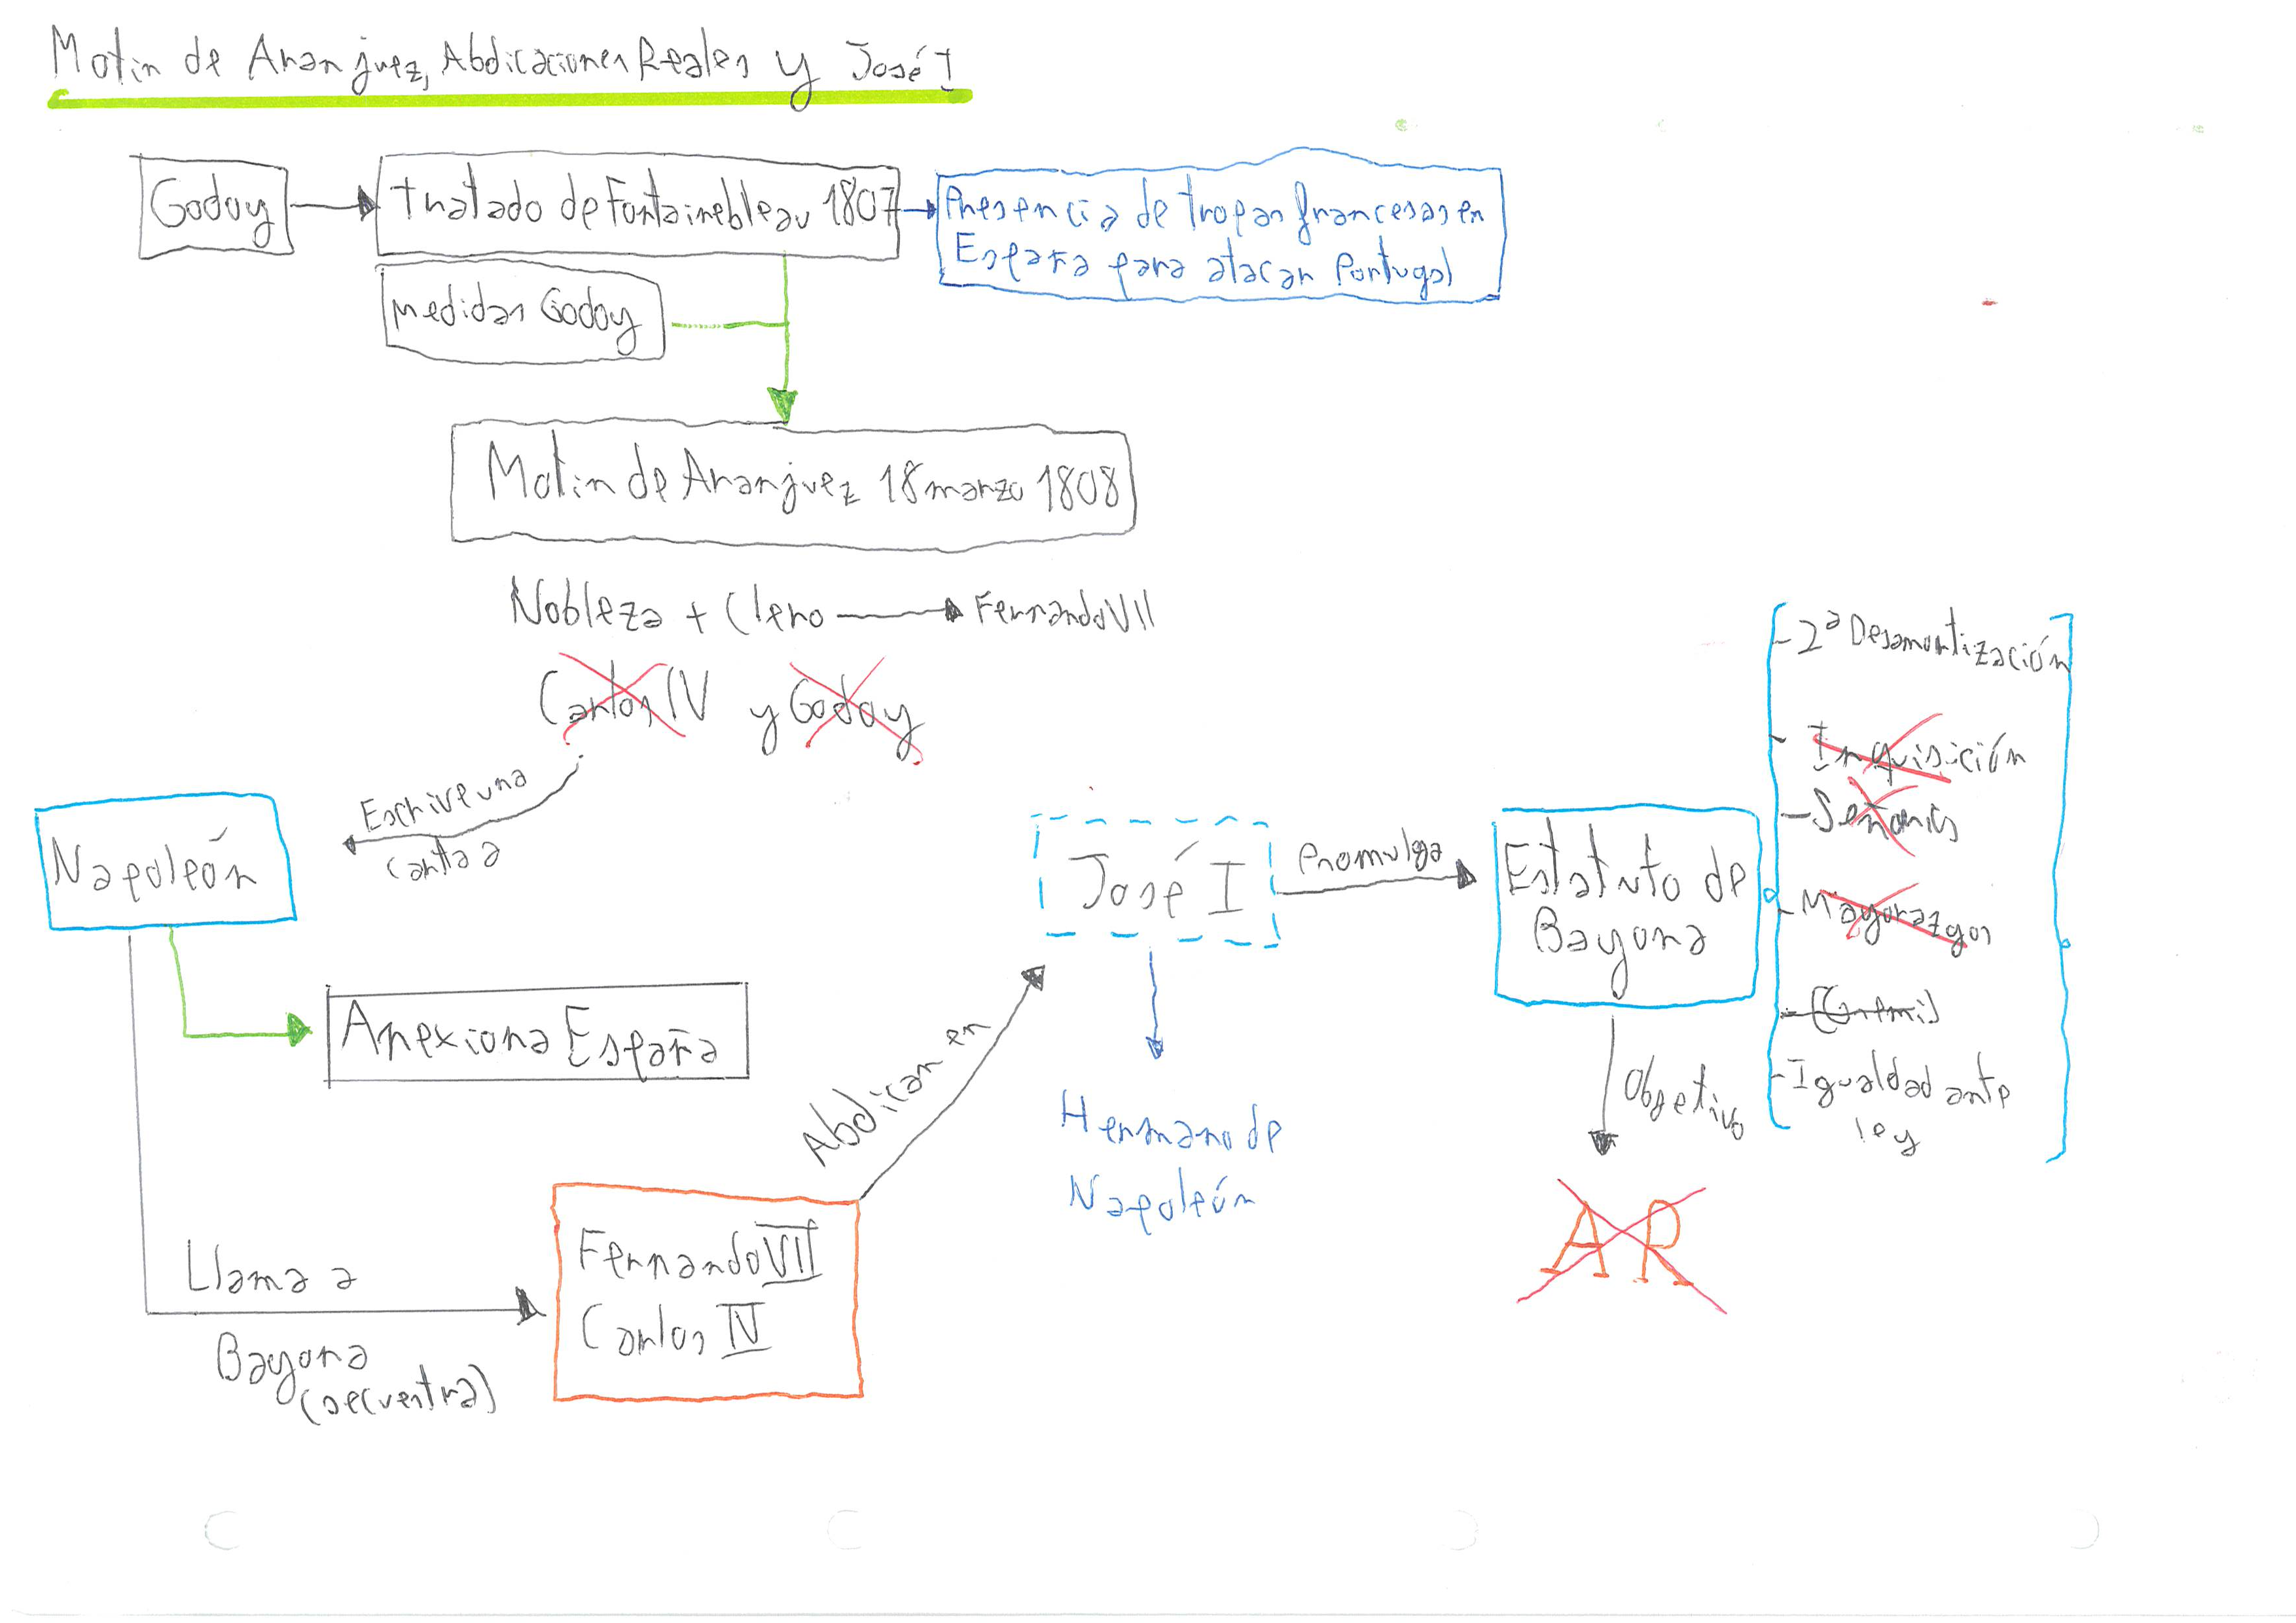 Motin de Aranjuez, Abdicaciones Reales y José I
Godoy
tratado de Fontainebleau 1807
Presencia de tropas francesas en
España para atacar Portugal
Medidas Godoy
Motin de Aranjuez 18 marzo 1808
Nobleza + Clero
Fernando VII
Carlos IV y Godoy
Escrive una
carta a
Napoleón
Anexiona España
Llama a
Bayona
(secuestra)
Fernando VII
Carlos IV
Abdican en
José I
Hermano de
Napoleón
Promulga
Estatuto de
Bayona
Objetivo
AR
- 2ª Desamortización
- Inquisición
- Señoríos
- Mayorazgos
- (Gremi)
- Igualdad ante
ley